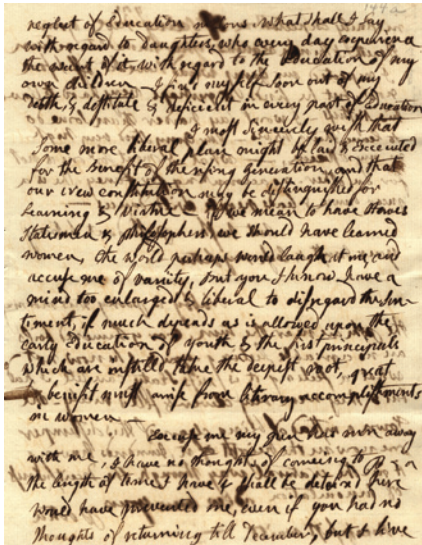 174a
neglect of Education in sons, what shall I say
with regard to daughters, who every day experience
the want of it. with regard to the Education of my
own children I find myself soon out of my
depth, & destitute & deficient in every part of Education
I most sincerely wish that
some more liberal plan might be laid & executed
for the Benefit of the rising Generation, and that
our new constitution may be distinguished for
Learning & Virtue. If we mean to have Heroes
Statesmen & philosophers, we should have learned
women, the world perhaps would laugh at me and
accuse me of vanity, But you I know have a
mind too enlarged & liberal to disregard the Sen-
timent, if much depends as is allowed upon the
early Education of youth & the first principals
which are instilld take the deepest root, great
benifit must arise from litirary accomplishments
in women —
Excuse me my pen has run away
with me, I have no thoughts of comeing to P
the length of time I have & shall be detaind here
would have prevented me, even if you had no
thoughts of returning till December, but I live